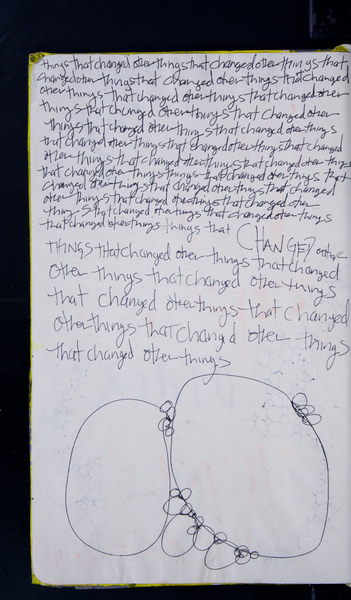 things that changed other things that changed other things that
changed other things that changed other things that changed
other things that changed other things that changed other
things that changed other things that changed other
things that changed other things that changed other things
that changed other things that changed other things that changed
other things that changed other things that changed other things
that changed other things that changed other things that
changed other things that changed other things that changed
other things that changed other things that changed other
things that changed other things that changed other things
that changed other things things that CHANGED other
THINGS that changed other things that changed
other things that changed other things
that changed other things that changed
other things that changed other things
that changed other things